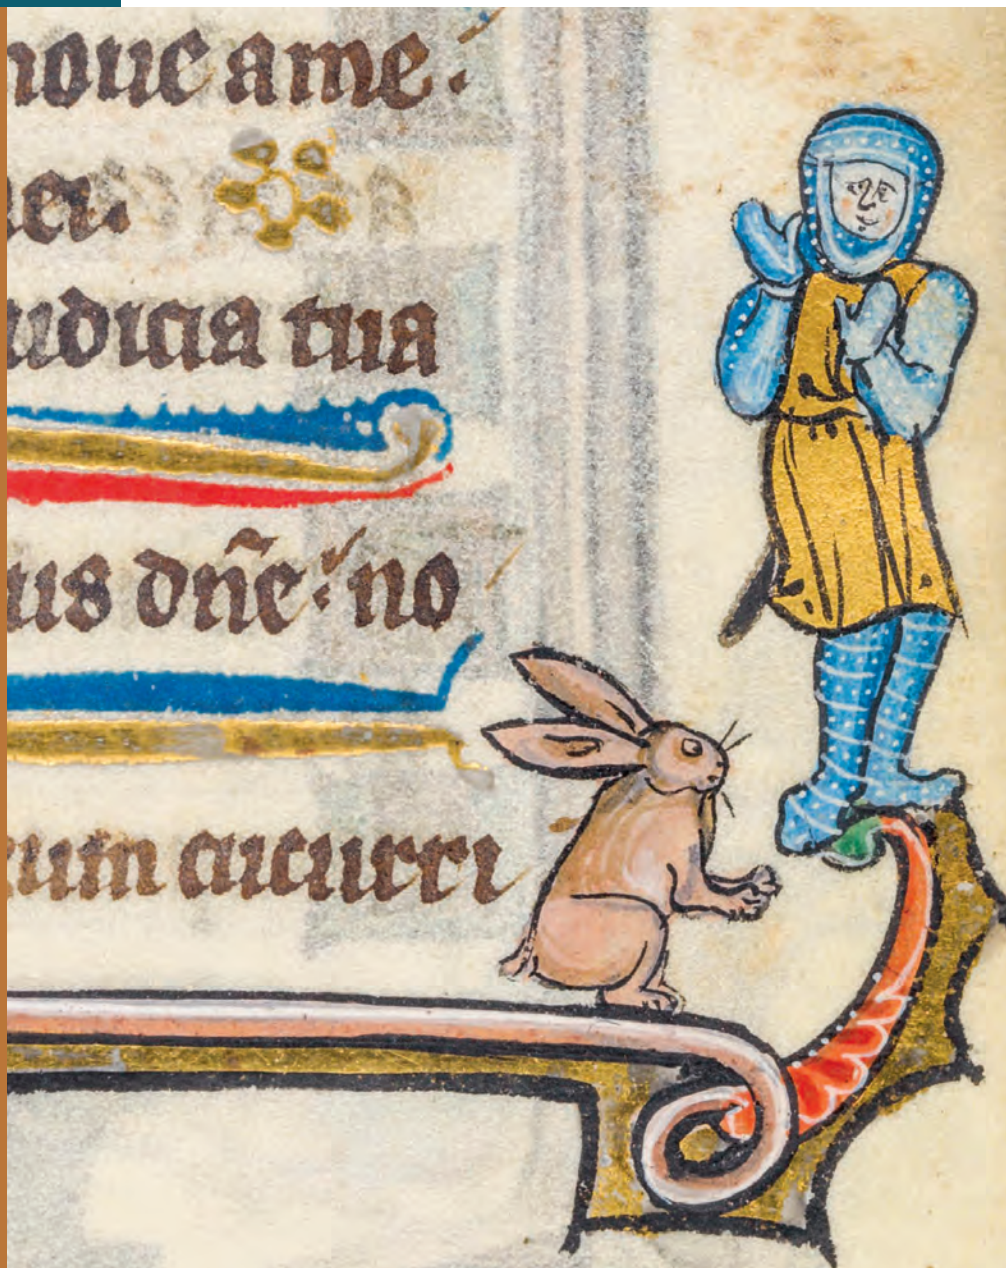 noue ame.
iudicia tua
us dn̄e: no
um cucurri